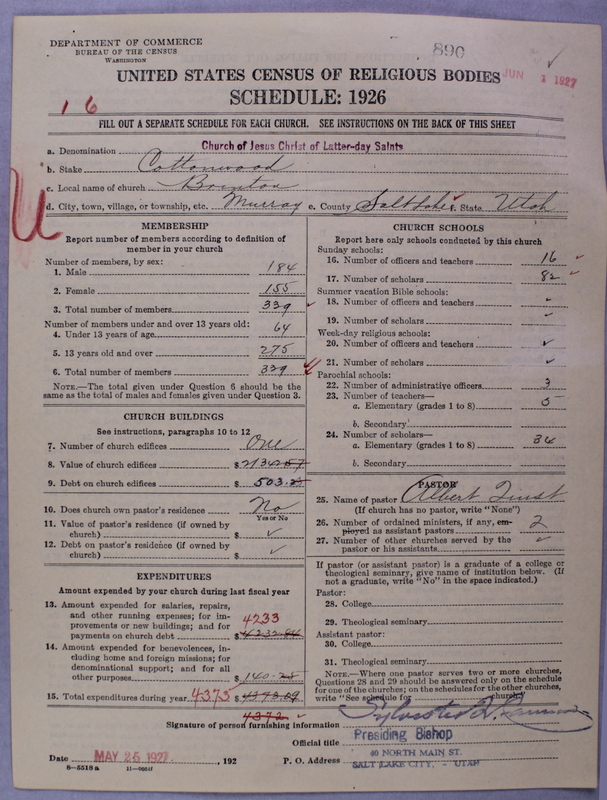 DEPARTMENT OF COMMERCE
BUREAU OF THE CENSUS
WASHINGTON
890
UNITED STATES CENSUS OF RELIGIOUS BODIES
JUN 1 1927
SCHEDULE: 1926
16
FILL OUT A SEPARATE SCHEDULE FOR EACH CHURCH. SEE INSTRUCTIONS ON THE BACK OF THIS SHEET
a. Denomination Church of Jesus Christ of Latter-day Saints
b. Stake Cottonwood
c. Local name of church
d. City, town, village, or township, etc. Murray e. County Salt Lake f. State Utah
MEMBERSHIP
Report number of members according to definition of
member in your church
Number of members, by sex:
1. Male 184
2. Female 155
3. Total number of members 339
Number of members under and over 13 years old:
4. Under 13 years of age 64
5. 13 years old and over 275
6. Total number of members 339
NOTE.—The total given under Question 6 should be
same as the total of males and females given under Question 3.
CHURCH BUILDINGS
See instructions, paragraphs 10 to 12
7. Number of church edifices One
8. Value of church edifices $
9. Debt on church edifices $ 503.
10. Does church own pastor's residence No
Yes or No
11. Value of pastor's residence (if owned by
church) $
12. Debt on pastor's residence (if owned by
church) $
EXPENDITURES
Amount expended by your church during last fiscal year
13. Amount expended for salaries, repairs,
and other running expenses; for im-
provements or new buildings; and for
4233
payments on church debt $ 4232.84
14. Amount expended for benevolences, in-
cluding home and foreign missions; for
denominational support; and for all
other purposes $ 140.25
15. Total expenditures during year 4373 $ 4373.09
4372
CHURCH SCHOOLS
Report here only schools conducted by this church
Sunday schools:
16. Number of officers and teachers 16
17. Number of scholars 82
Summer vacation Bible schools:
18. Number of officers and teachers
19. Number of scholars
Week-day religious schools:
20. Number of officers and teachers
21. Number of scholars
Parochial schools:
22. Number of administrative officers 3
23. Number of teachers—
a. Elementary (grades 1 to 8) 5
b. Secondary
24. Number of scholars—
a. Elementary (grades 1 to 8) 34
b. Secondary
PASTOR
25. Name of pastor Albert
(If church has no pastor, write "None")
26. Number of ordained ministers, if any, em-
ployed as assistant pastors 2
27. Number of other churches served by the
pastor or his assistants
If pastor (or assistant pastor) is a graduate of a college or
theological seminary, give name of institution below. (If
not a graduate, write "No" in the space indicated.)
Pastor:
28. College
29. Theological seminary
Assistant pastor:
30. College
31. Theological seminary
NOTE.—Where one pastor serves two or more churches,
Questions 28 and 29 should be answered only on the schedule
for one of the churches; on the schedules for the other churches,
write "See schedule for church)
Signature of person furnishing information
Official title Presiding Bishop
40 NORTH MAIN ST.
Date MAY 25 1927, 192 P. O. Address SALT LAKE CITY, - UTAH
8-5518a